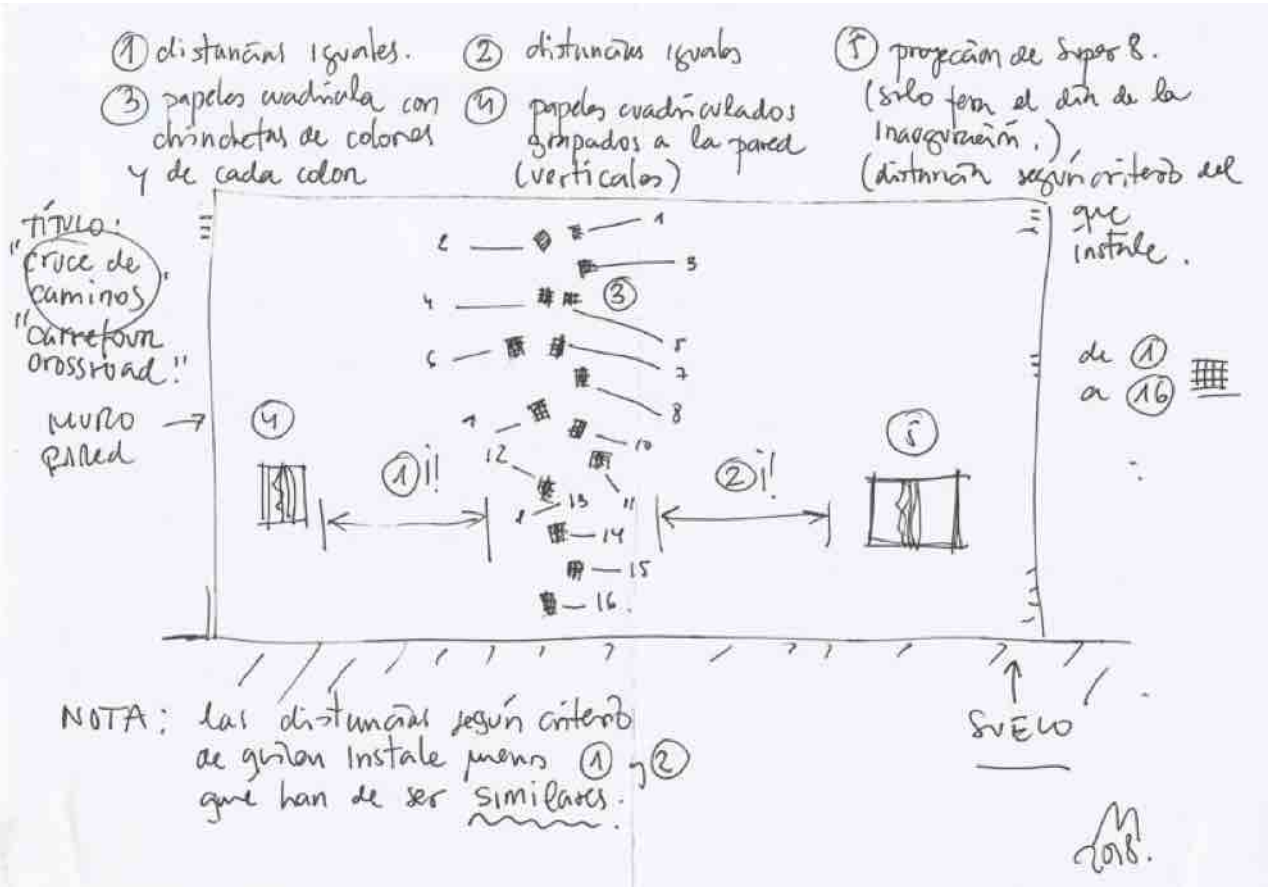 ① distancias iguales.
③ papeles cuadrícula con
chinchetas de colores
y de cada color
② distancias iguales
④ papeles cuadriculados
grapados a la pared
(verticales)
⑤ proyección de Super 8.
(solo para el día de la
inauguración.)
(distancia según criterio del
que
instale.
TÍTULO:
"cruce de
caminos"
"Carrefour
crossroad."
MURO
PARED
de ①
a ⑯
2
1
3
4
③
5
6
7
8
④
10
①¡!
12
11
13
②¡!
⑤
14
15
16.
NOTA: las distancias según criterio
de quien instale menos ① y ②
que han de ser similares.
SUELO
2018.